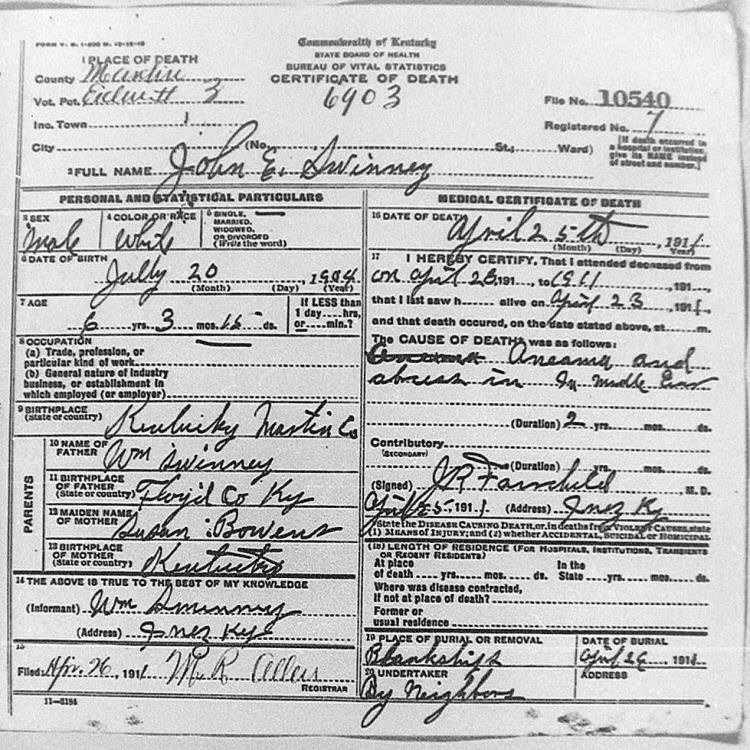 FORM V. S. 1-200 M. 10-15-10
Commonwealth of Kentucky
STATE BOARD OF HEALTH
BUREAU OF VITAL STATISTICS
CERTIFICATE OF DEATH
6903
1 PLACE OF DEATH
County Martin
Vot. Pct. 3
Inc. Town
City (No. St.; Ward)
File No. 10540
Registered No. 7
[If death occurred in a hospital or institution, give its NAME instead of street and number.]
2 FULL NAME John E. Swinney
PERSONAL AND STATISTICAL PARTICULARS
3 SEX
Male
4 COLOR OR RACE
White
5 SINGLE, MARRIED, WIDOWED, OR DIVORCED (Write the word)
6 DATE OF BIRTH
Jully 20, 1904
(Month) (Day) (Year)
7 AGE
6 yrs. 3 mos. 15 ds.
If LESS than 1 day....hrs, or....min.?
8 OCCUPATION
(a) Trade, profession, or particular kind of work
(b) General nature of industry business, or establishment in which employed (or employer)
9 BIRTHPLACE (State or country) Kentucky Martin Co
PARENTS
10 NAME OF FATHER Wm Swinney
11 BIRTHPLACE OF FATHER (State or country) Floyd Co Ky
12 MAIDEN NAME OF MOTHER Susan Bowens
13 BIRTHPLACE OF MOTHER (State or country) Kentucky
14 THE ABOVE IS TRUE TO THE BEST OF MY KNOWLEDGE
(Informant) Wm Swinney
(Address) Inez Ky
15
Filed Apr. 26, 1911 M. R. Allen
REGISTRAR
11-3184
MEDICAL CERTIFICATE OF DEATH
16 DATE OF DEATH April 25th, 1911
(Month) (Day) Year)
17 I HEREBY CERTIFY, That I attended deceased from
on April 23, 191 , to 1911, 191
that I last saw h alive on April 23 1911,
and that death occured, on the date stated above, at m.
The CAUSE OF DEATH was as follows:
Aneama and
abscess in In Middle Ear
(Duration) 2 yrs. mos. ds.
Contributory
(SECONDARY)
(Duration) yrs. mos. ds.
(Signed) J R Fairchild M. D.
April 25, 1911 (Address) Inez Ky
State the DISEASE CAUSING DEATH, or, in deaths from VIOLENT CAUSES, state (1) MEANS OF INJURY; and (2) whether ACCIDENTAL, SUICIDAL or HOMICIDAL
(18) LENGTH OF RESIDENCE (FOR HOSPITALS, INSTITUTIONS, TRANSIENTS OR RECENT RESIDENTS)
At place of death yrs. mos. ds. In the State yrs. mos. ds.
Where was disease contracted, If not at place of death?
Former or usual residence
19 PLACE OF BURIAL OR REMOVAL
DATE OF BURIAL
April 26 1911
20 UNDERTAKER
By Neighbors
ADDRESS